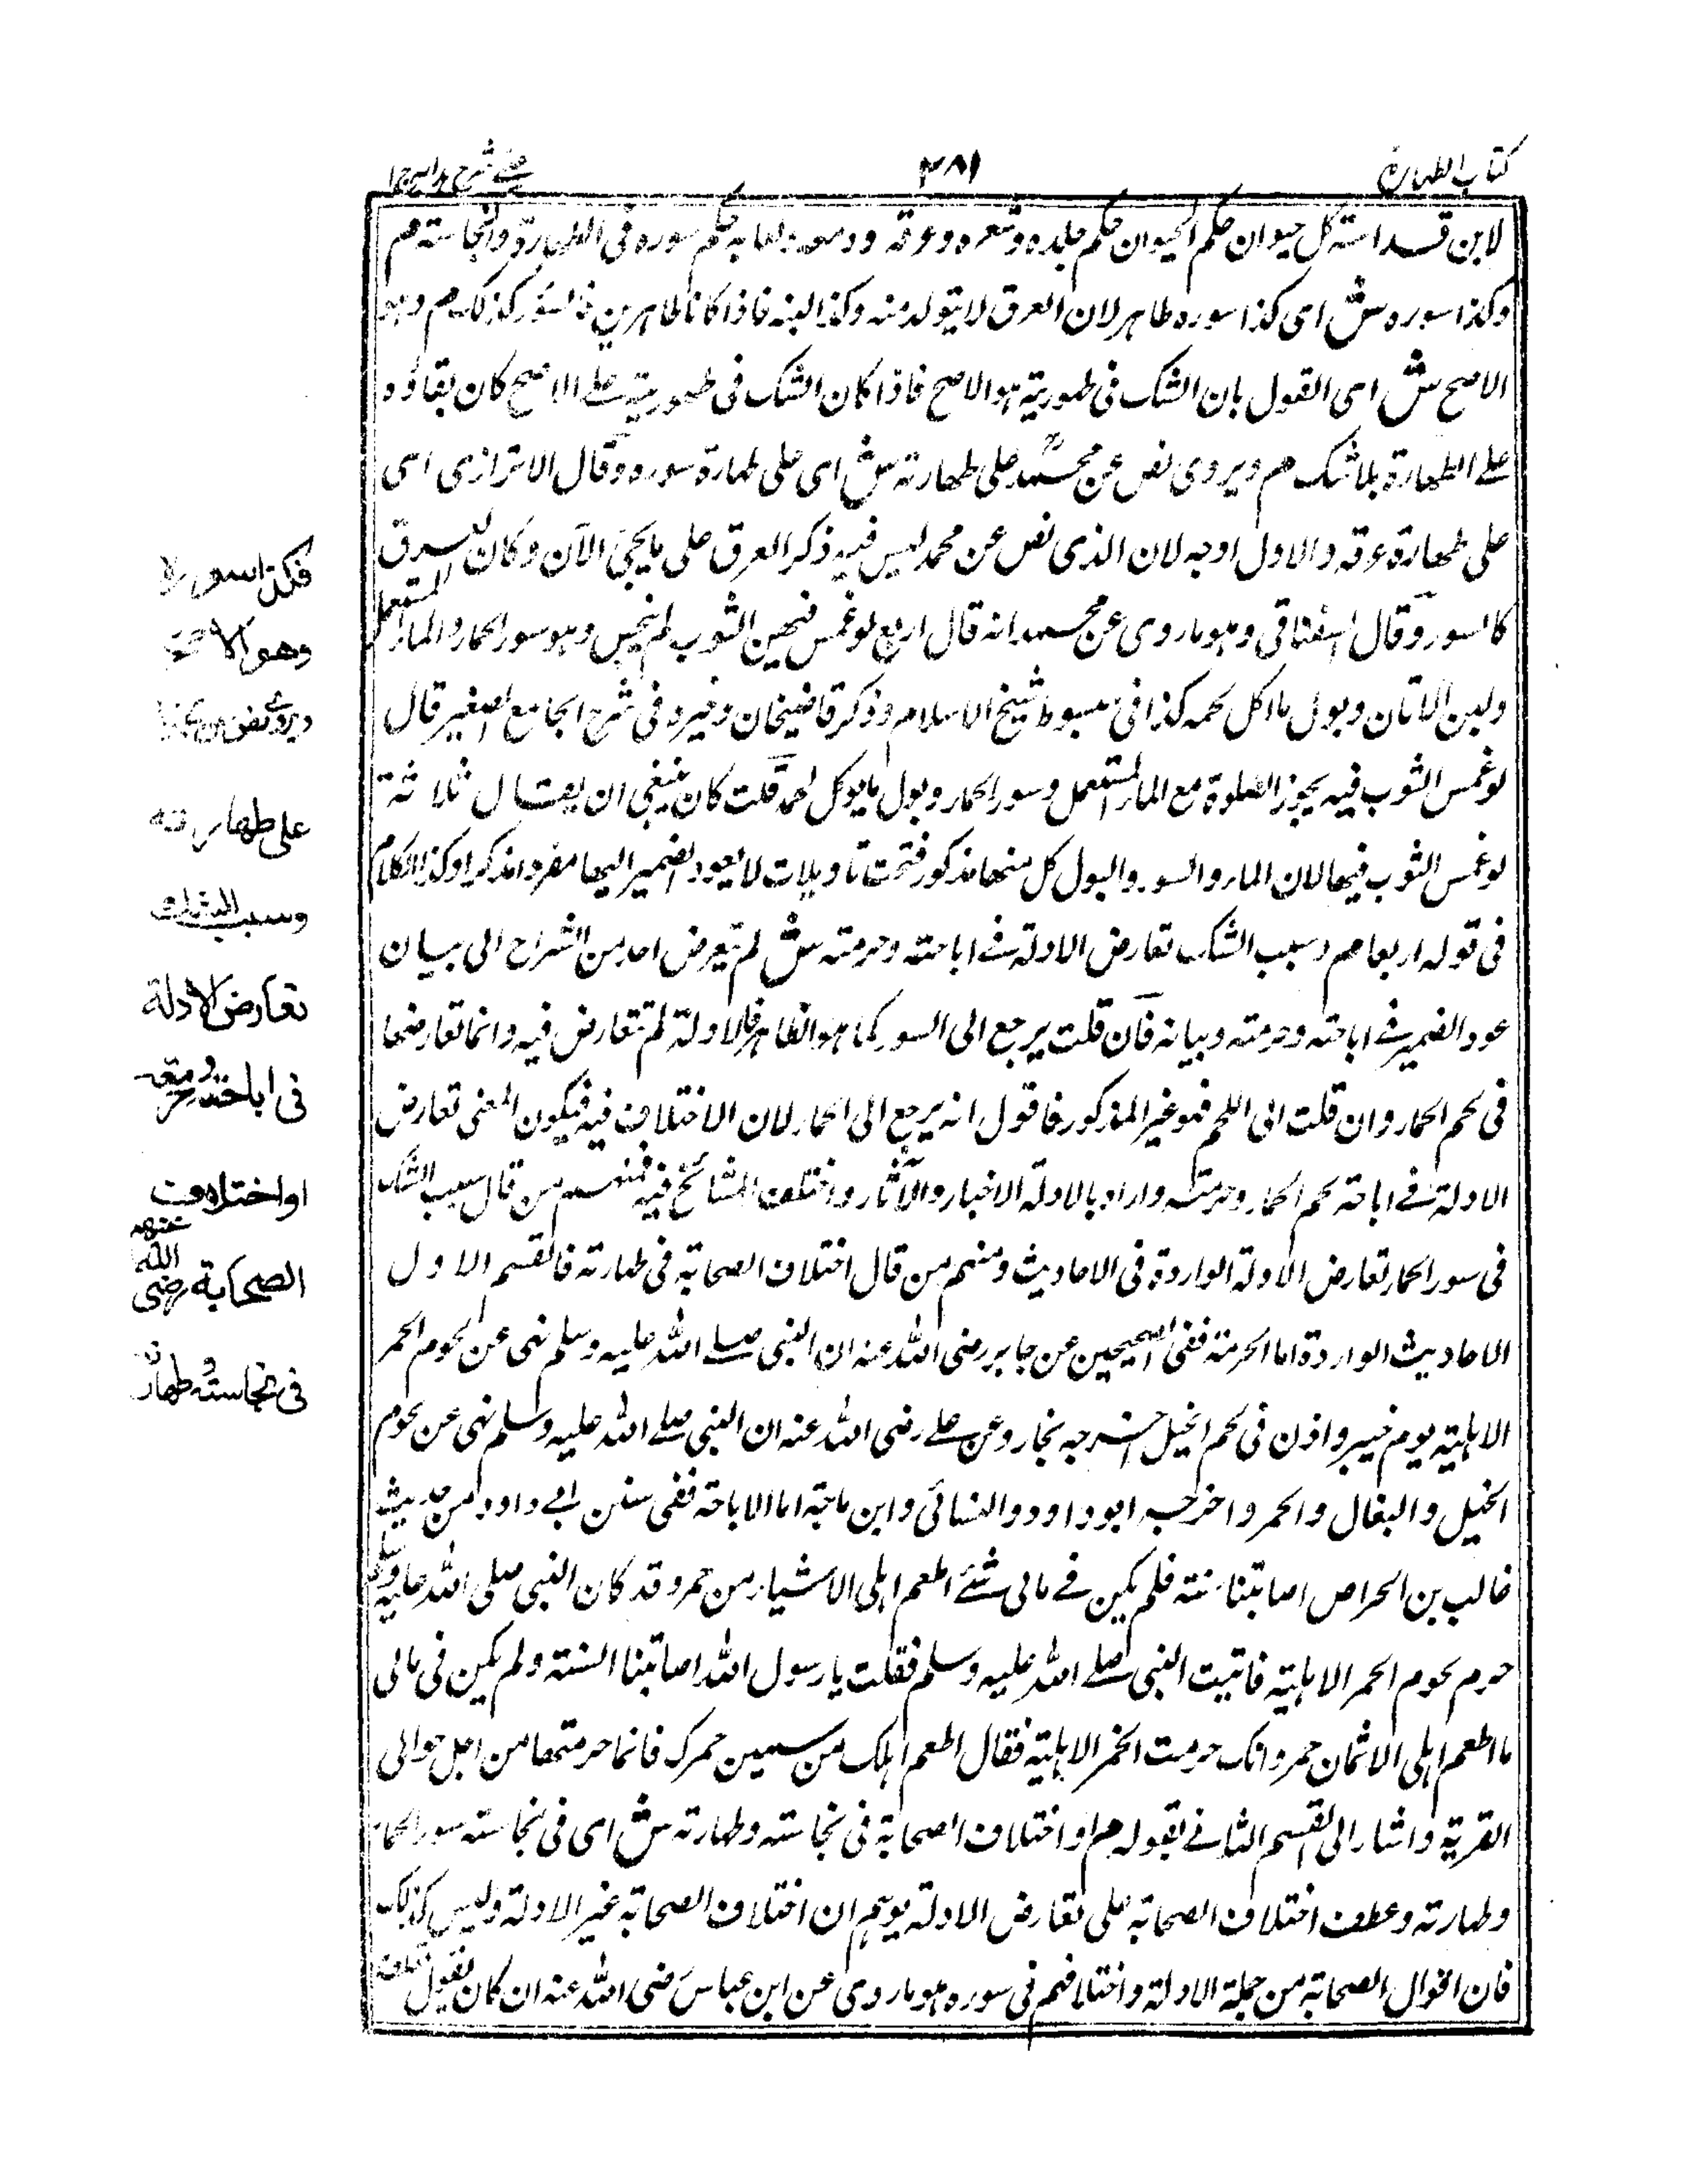 كتاب الطهارة
٢٨١
عینی شرح هدایه ج ١
لابن قدامة كل حيوان حكم الحيوان حكم جلده وشعره وعرقه ودمعه ولعابه حكم سوره فى الطهارة والنجاسة م
وكذا سوره ش اى كذا سوره طاهر لان العرق لا يتولد منه وكذا لبنه فاذا كانا طاهرين فالسور كذلك م وهو
الاصح ش اى القول بان الشك فى طهوريته هو الاصح فاذا كان الشك فى طهوريته على الاصح كان بقاؤه
على الطهارة بلا شك م ويروى نص عن محمد على طهارته ش اى على طهارة سوره وقال الاترازى اى
على طهارة عرقه والاول اوجه لان الذى نص عن محمد ليس فيه ذكر العرق على ما يجئ الآن وكان العرق
كالسور وقال السغناقى وهو ما روى عن محمد انه قال اربع لو غمس فيهن الثوب لم ينجس وهو سور الحمار والماء المستعمل
ولبن الاتان وبول ما اكل لحمه كذا فى مبسوط شيخ الاسلام وذكر قاضيخان وغيره فى شرح الجامع الصغير قال
لو غمس الثوب فيه يجوز الصلوة مع الماء المستعمل وسور الحمار وبول ما يوكل لحمه قلت كان ينبغى ان يقال ثلاثة
لو غمس الثوب فيها لان الماء والسور والبول كل منها مذكور فتحت تاويلات لا يعود الضمير اليها مفردا مذكرا وكذا الكلام
فى قوله اربعا م وسبب الشك تعارض الادلة فے اباحته وحرمته ش لم يتعرض احد من الشراح الى بيان
عود الضمير فے اباحته وحرمته وبيانه فان قلت يرجع الى السور كما هو الظاهر فالادلة لم تتعارض فيه وانما تعارضها
فى لحم الحمار وان قلت الى اللحم فهو غير المذكور فاقول انه يرجع الى الحمار لان الاختلاف فيه فيكون المعنى تعارض
الادلة فے اباحة لحم الحمار وحرمته واراد بالادلة الاخبار والآثار واختلف المشائخ فيه فمنهم من قال سبب الشك
فى سور الحمار تعارض الادلة الواردة فى الاحاديث ومنهم من قال اختلاف الصحابة فى طهارته فالقسم الاول
الاحاديث الواردة اما الحرمة ففى الصحيحين عن جابر رضى الله عنه ان النبى صلے الله عليه وسلم نهى عن لحوم الحمر
الاهلية يوم خيبر واذن فى لحم الخيل اخرجه بخار وعن علے رضى الله عنه ان النبى صلے الله عليه وسلم نهى عن لحوم
الخيل والبغال والحمر واخرجه ابو داود والنسائى وابن ماجة اما الاباحة ففى سنن ابے داود من حديث
غالب بن الحراص اصابتنا سنة فلم يكن فے مالى شئ اطعم اهلى الا شياء من حمر وقد كان النبى صلى الله عليه وسلم
حرم لحوم الحمر الاهلية فاتيت النبى صلے الله عليه وسلم فقلت يا رسول الله اصابتنا السنة ولم يكن فى مالى
ما اطعم اهلى الا ثمان حمر وانك حرمت الخمر الاهلية فقال اطعم اهلك من سمين حمرك فانما حرمتها من اجل حوالى
القرية واشار الى القسم الثانے بقوله م او اختلاف الصحابة فى نجاسته وطهارته ش اى فى نجاسته سور الحمار
وطهارته وعطف اختلاف الصحابة على تعارض الادلة يوهم ان اختلاف الصحابة غير الادلة وليس كذلك
فان اقوال الصحابة من جملة الادلة واختلافهم فى سوره هو ما روى عن ابن عباس رضى الله عنه ان كان يقول
فكذا سوره
وهو الاصح
ويروى نص
على طهارته
وسبب الشك
تعارض الادلة
فى اباحته وحرمته
او اختلاف
الصحابة رضى الله عنهم
فى نجاسته وطهارته